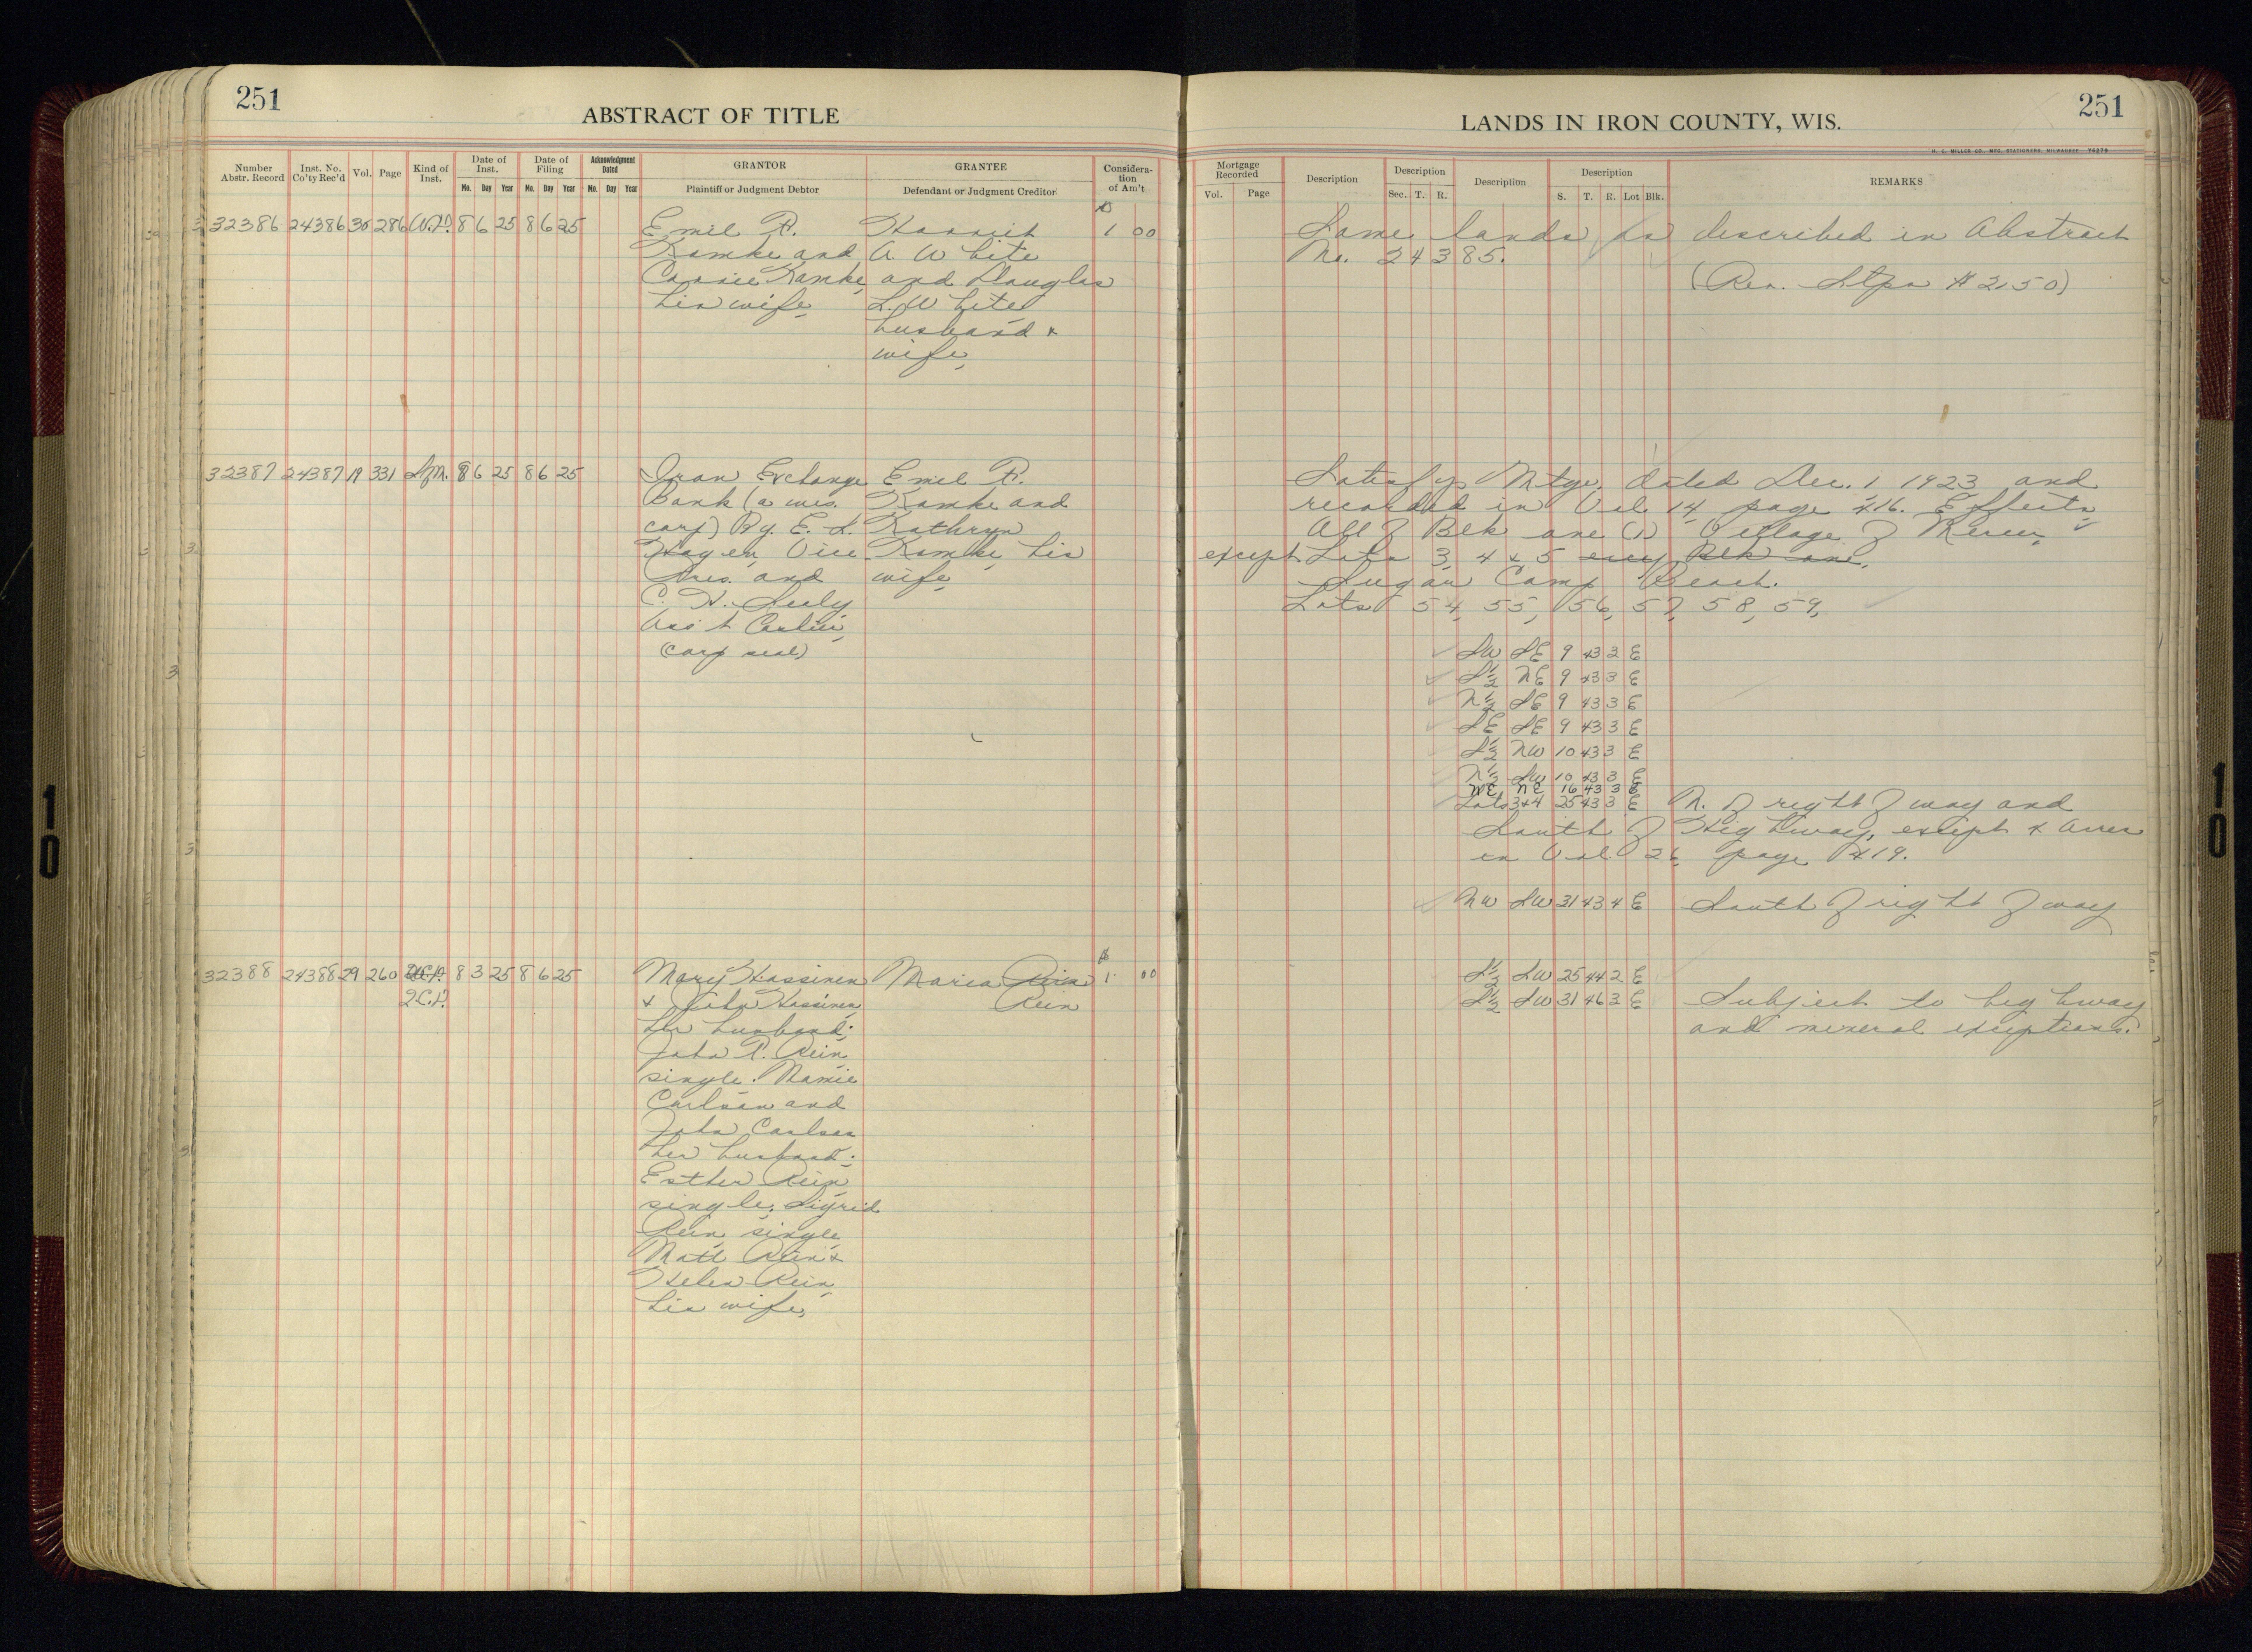 251
ABSTRACT OF TITLE
Number Abstr. Record
Inst. No. Co'ty Rec'd
Vol.
Page
Kind of Inst.
Date of Inst.
Mo. Day Year
Date of Filing
Mo. Day Year
Acknowledgment Dated
Mo. Day Year
GRANTOR
Plaintiff or Judgment Debtor
GRANTEE
Defendant or Judgment Creditor
Considera-tion of Am't
32386 24386 30 286 W.D. 8 6 25 8 6 25 Emil R. Harriet $1 00
Ramke and A. White
Carrie Ramke, and Douglas
his wife, L. White
husband &
wife,
32387 24387 19 331 S.M. 8 6 25 8 6 25 Iron Exchange Emil R.
Bank (a wis. Ramke and
corp) By. E. L. Kathryn
Hagen, Vice Ramke, his
Pres. and wife,
C. H. Seely
Ass't Cashier,
(corp seal)
32388 24388 29 260 8 3 25 8 6 25 Mary Hassinen Maria Rein $1 00
Q.C.D. & John Hassinen, Rein
her husband;
John R. Rein,
single. Mamie
Carlson and
John Carlson
her husband;
Esther Rein
single; Sigrid
Rein, single,
Matt Rein &
Helen Rein,
his wife,
LANDS IN IRON COUNTY, WIS.
251
H. C. MILLER CO., MFG. STATIONERS, MILWAUKEE Y6279
Mortgage Recorded
Vol. Page
Description
Description
Sec. T. R.
Description
Description
S. T. R. Lot Blk.
REMARKS
Same lands as described in Abstract
No. 24385.
(Rev. Stps $2.50)
Satisfys Mtge. dated Dec. 1 1923 and
recorded in Vol 14 page 416. Effects
All of Blk one (1) Village of Mercer
except Lots 3, 4 & 5 Blk one,
Sugar Camp Beach.
Lots 54, 55, 56, 57, 58, 59,
SW SE 9 43 3 E
S½ NE 9 43 3 E
N½ SE 9 43 3 E
SE SE 9 43 3 E
S½ NW 10 43 3 E
N½ SW 10 43 3 E
NE NE 16 43 3 E
Lots 3&4 25 43 3 E N. of right of way and
South of Highway, except 4 acres
in Vol 26 page 419.
NW SW 31 43 4 E South of right of way
S½ SW 25 44 2 E
S½ SW 31 46 2 E Subject to highway
and mineral exceptions.
10
10